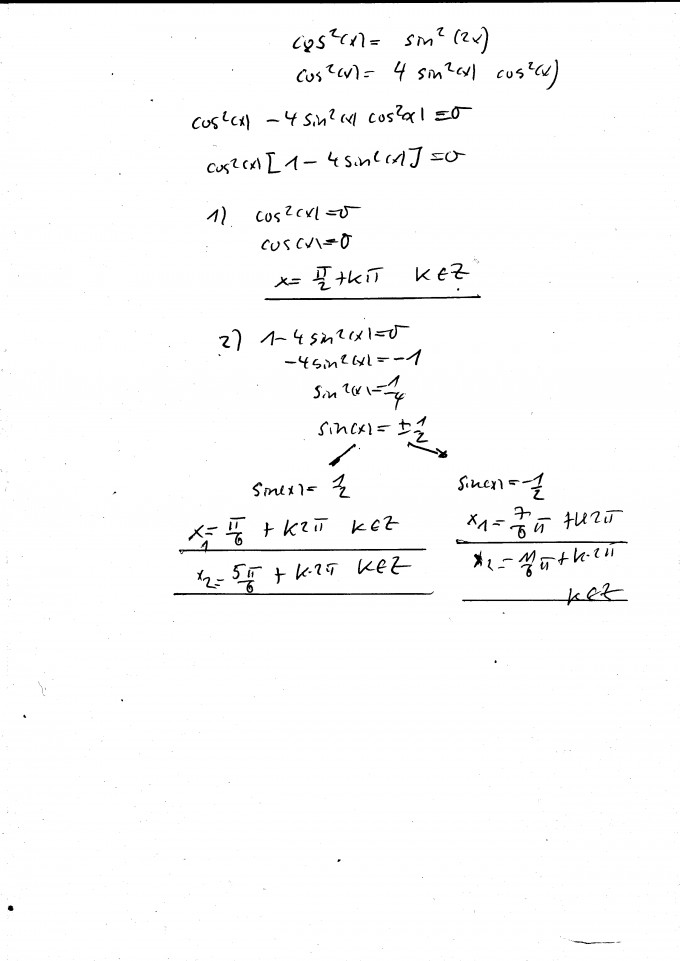 cos²(x) = sin²(2x)
cos²(x) = 4 sin²(x) cos²(x)
cos²(x) - 4 sin²(x) cos²(x) = 0
cos²(x) [1 - 4 sin²(x)] = 0
1) cos²(x) = 0
cos(x) = 0
x = π/2 + kπ k∈Z
2) 1 - 4 sin²(x) = 0
-4 sin²(x) = -1
sin²(x) = 1/4
sin(x) = ± 1/2
sin(x) = 1/2
x₁ = π/6 + k2π k∈Z
x₂ = 5π/6 + k·2π k∈Z
sin(x) = -1/2
x₁ = 7/6 π + k2π
x₂ = 11/6 π + k·2π
k∈Z